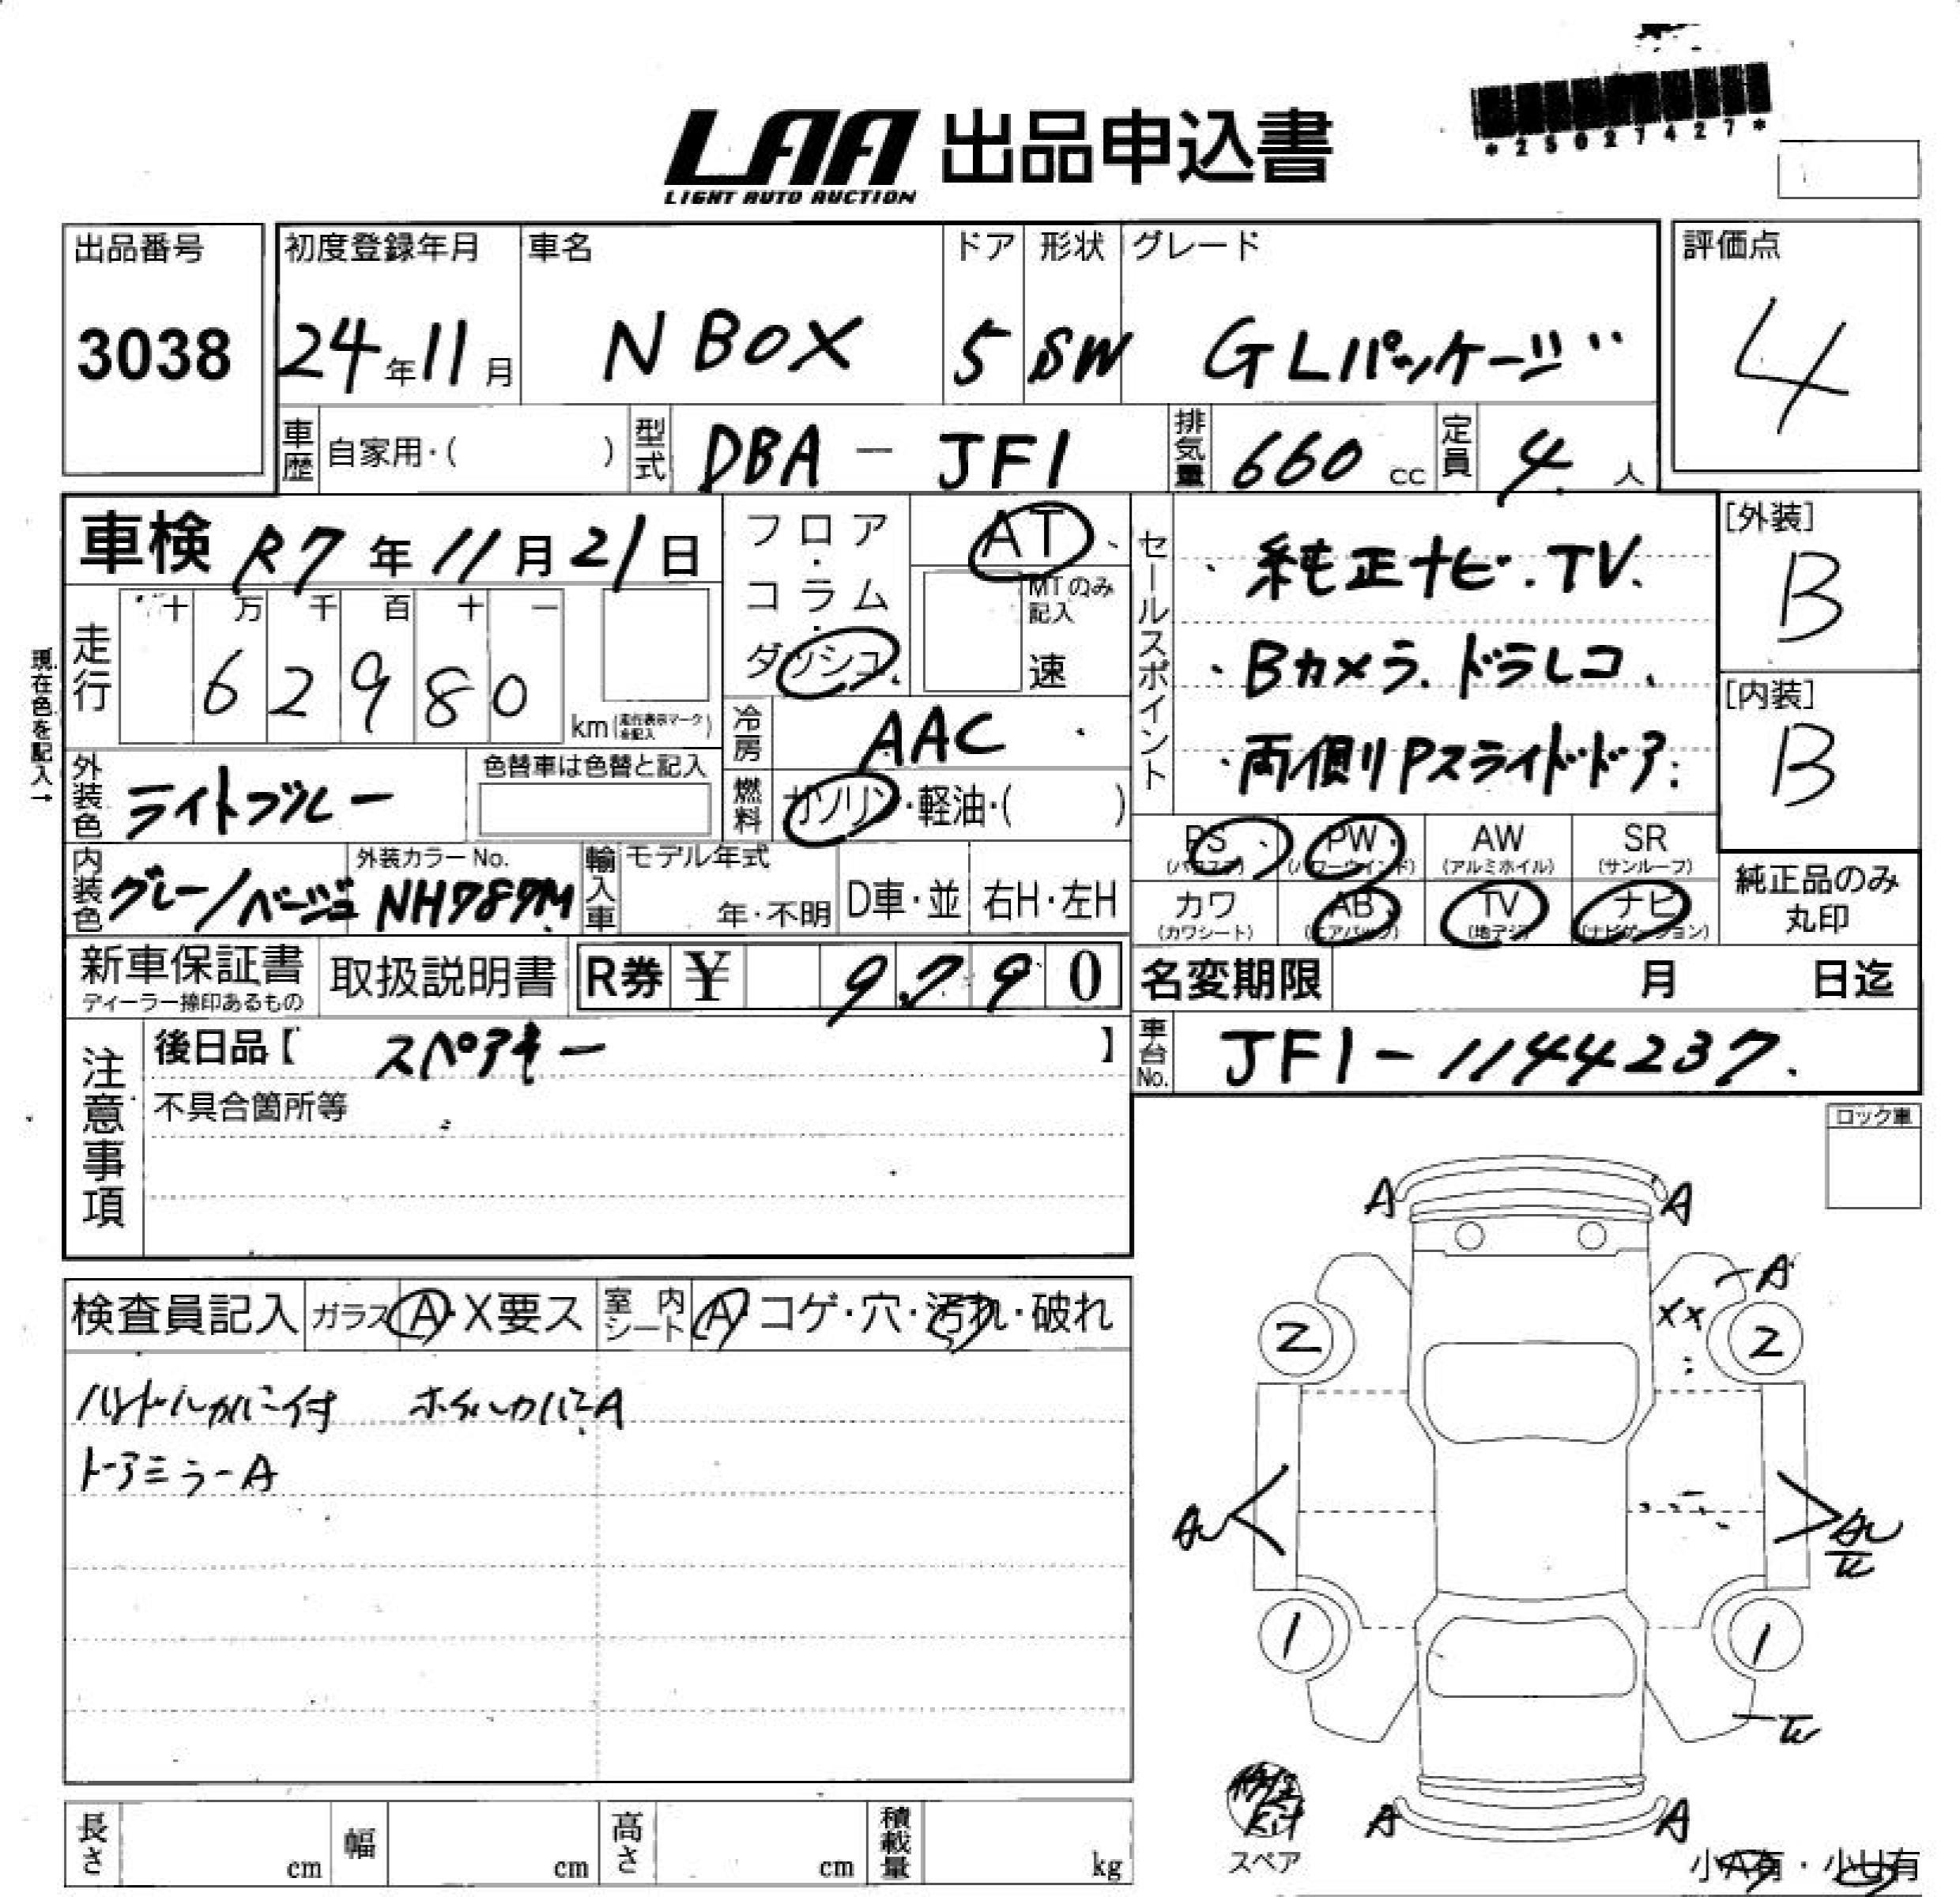 LAA 出品申込書
LIGHT AUTO AUCTION
*25027427*
出品番号 初度登録年月 車名 ドア 形状 グレード 評価点
3038 24年11月 N BOX 5 SW GLパッケージ 4
車歴 自家用・( ) 型式 DBA - JF1 排気量 660 cc 定員 4 人
車検 R7年11月21日
フロア・コラム・ダッシュ AT
MTのみ記入 速
セールスポイント
純正ナビ.TV.
Bカメラ.ドラレコ.
両側Pスライドドア.
[外装] B
[内装] B
現在色を記入→
走行 十 万 千 百 十 一
6 2 9 8 0 km (走行表示マークを記入)
冷房 AAC
外装色 ライトブルー 色替車は色替と記入
燃料 ガソリン・軽油・( )
PS (パワステ) PW (パワーウインド) AW (アルミホイル) SR (サンルーフ)
カワ (カワシート) AB (エアバッグ) TV (地デジ) ナビ (ナビゲーション)
純正品のみ丸印
内装色 グレー/ベージュ 外装カラーNo. NH787M 輸入車 モデル年式 年・不明 D車・並 右H・左H
新車保証書 ディーラー捺印あるもの 取扱説明書 R券 ¥ 9,790
名変期限 月 日迄
注意事項
後日品【 スペアキー 】
車台No. JF1-1144237
不具合箇所等
ロック車
検査員記入 ガラス A・X要ス 室内シート A・コゲ・穴・汚れ・破れ
ハンドルカバー付 ホイルカバーA
ドアミラーA
A A
A
XX
2 2
1 1
A A
スペア
小A有・小U有
長さ cm 幅 cm 高さ cm 積載量 kg